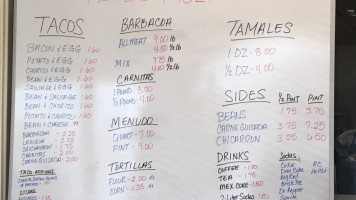 TACOS
BACON & EGG 1.60
POTATO & EGG 1.60
CHORIZO & EGG 1.60
BEAN & EGG 1.60
SAUSAGE & EGG 1.60
BEAN & SAUSAGE 1.60
BEAN & CHORIZO 1.60
BEAN & BACON 1.60
POTATO & CHORIZO 1.60
BEAN & CHEESE
BARBACOA
LENGUA
CHICHARRON
CARNITAS
CARNE GUISADA
BARBACOA
ALL MEAT 9.00 lb
4.50 ½ lb
MIX 7.75 lb
½ lb
CARNITAS
1 POUND 8.00
½ POUND 4.00
MENUDO
QUART 7.00
PINT 4.00
TORTILLAS
FLOUR - 2.00
CORN - 1.25
TAMALES
1 DZ - 8.00
½ DZ - 4.00
SIDES ½ PINT PINT
BEANS 1.75 3.75
CARNE GUISADA 3.75 7.25
CHICARRON 3.25 6.50
DRINKS
COFFEE 1.00
TEA 1.75
MEX. COKE
2-Liter Sodas
Sodas
Coke
Diet Coke
Big Red
Dr Pepper
Sprite
RC
PEPSI